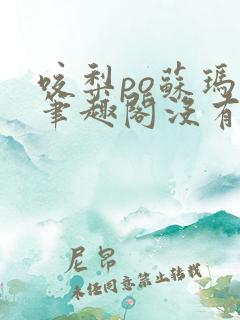 咬梨po蘇瑪
筆趣閣沒有
尼昂
未经同意禁止转载